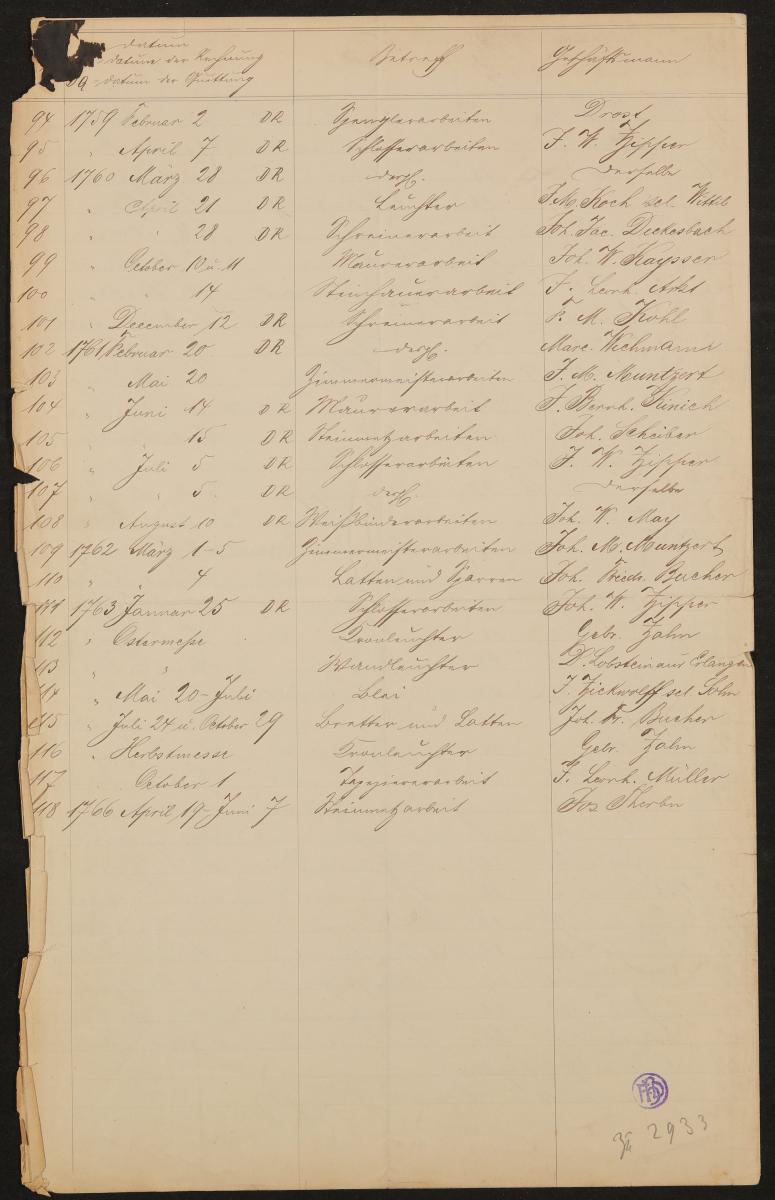 datum
datum der Rechnung Betreff Geschäftsmann
DQ - datum der Quittung
94 1759 Februar 2 DR Spenglerarbeiten Drost
95 " April 7 DR Schlosserarbeiten F. W. Zipper
96 1760 März 28 DR desgl. Derselbe
97 " April 21 DR Leuchter J. M. Koch sel. Wittib
98 " " 28 DR Schreinerarbeit Joh. Jac. Deckesbach
99 " October 10 u. 11 Maurerarbeit Joh. W. Kaysser
100 " " 14 Steinhauerarbeit F. Leonh. Arzt
101 " December 12 DR Schreinerarbeit F. M. Kohl
102 1761 Februar 20 DR desgl. Marc. Wichmann
103 " Mai 20 Zimmermeisterarbeiten J. M. Muntzert
104 " Juni 14 DR Maurerarbeit F. Bernh. Kinich
105 " " 15 DR Steinmetzarbeiten Joh. Scheiber
106 " Juli 5 DR Schlosserarbeiten J. W. Zipper
107 " " 5. DR desgl. Derselbe
108 " August 10 DR Weißbinderarbeiten Joh. W. May
109 1762 März 1-5 Zimmermeisterarbeiten Joh. M. Muntzert
110 " " 4 Latten und Sparren Joh. Friedr. Bucher
111 1763 Januar 25 DR Schlosserarbeiten Joh. W. Zipper
112 " Ostermesse Kronleuchter Gebr. Zahn
113 " " Wandleuchter D. Lobstein aus Erlangen
114 " Mai 20 - Juli Blei J. Zickwolff sel Sohn
115 " Juli 24 u. October 29 Bretter und Latten Joh. Fr. Bucher
116 " Herbstmesse Kronleuchter Gebr. Zahn
117 October 1 Tapeziererarbeit F. Leonh. Müller
118 1766 April 19 - Juni 7 Steinmetzarbeit Jos Therbu
2933